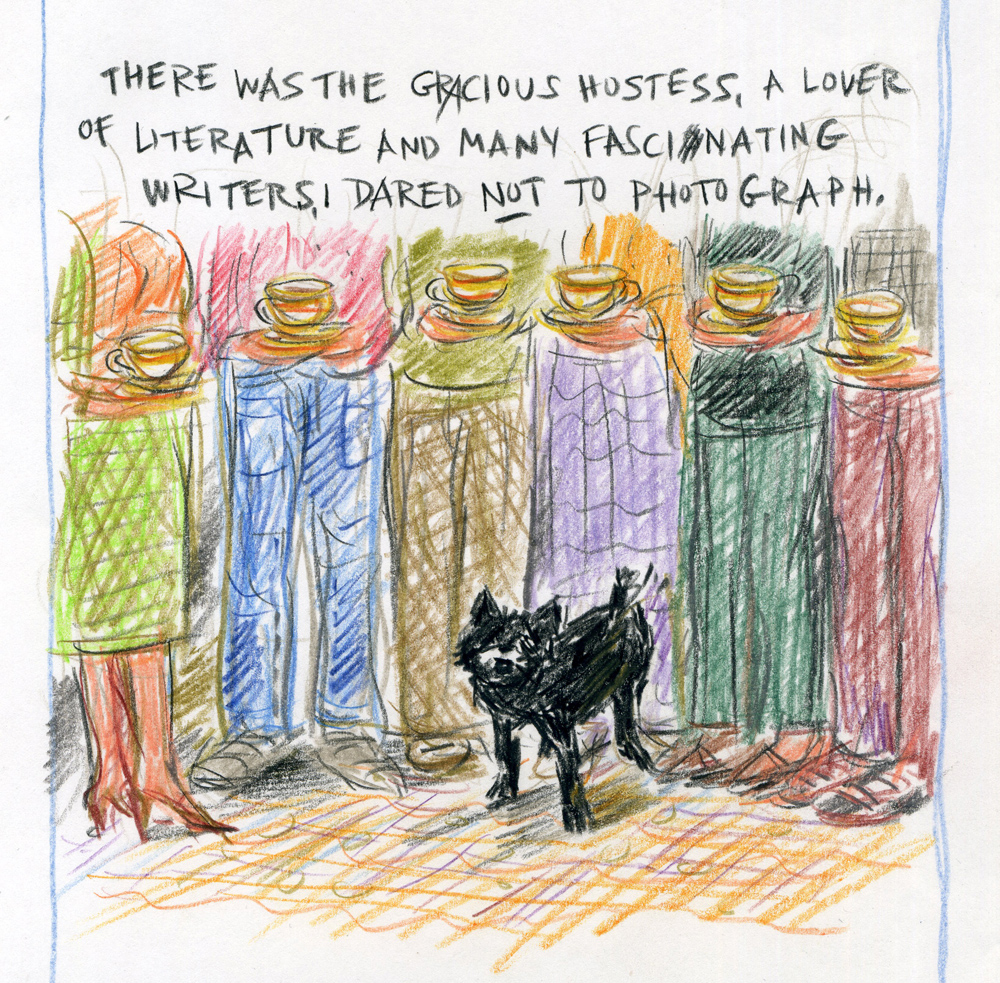 THERE WAS THE GRACIOUS HOSTESS, A LOVER
OF LITERATURE AND MANY FASCINATING
WRITERS, I DARED NOT TO PHOTOGRAPH.